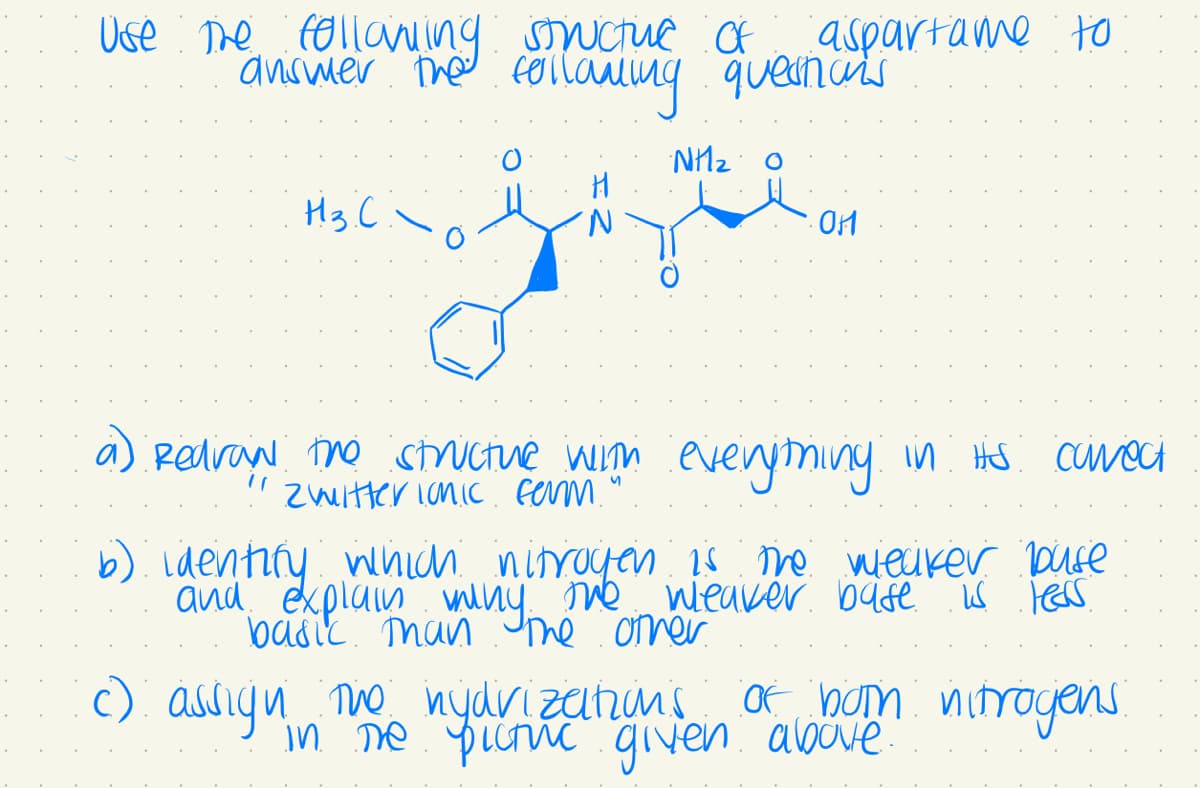 Use the following structure of aspartame to
answer the following questions
O
H
NH2
O
H3C
O
N
O
OH
a) Redraw the structure with everything in its correct
"zwitterionic form"
b) identify which nitrogen is the weaker base
and explain why the weaker base is less
basic than the other
c) assign the hydrizations of both nitrogens
in the picture given above.